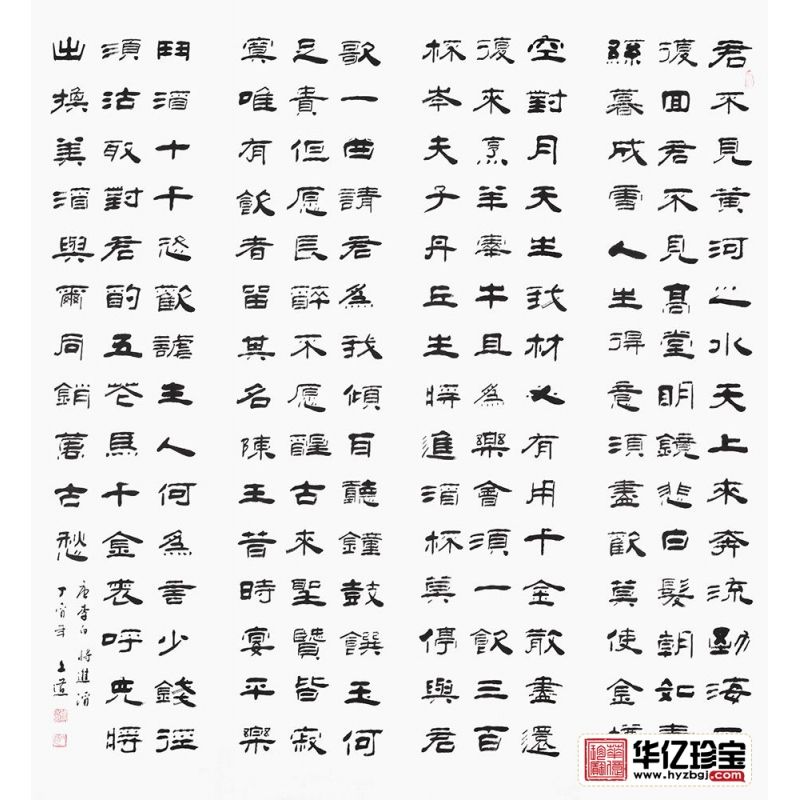 君不見黃河之水天上來奔流到海不
復回君不見高堂明鏡悲白髮朝如青
絲暮成雪人生得意須盡歡莫使金樽
空對月天生我材必有用千金散盡還
復來烹羊宰牛且為樂會須一飲三百
杯岑夫子丹丘生將進酒杯莫停與君
歌一曲請君為我傾耳聽鐘鼓饌玉何
足貴但愿長醉不愿醒古來聖賢皆寂
寞唯有飲者留其名陳王昔時宴平樂
鬥酒十千恣歡謔主人何為言少錢徑
須沽取對君酌五花馬千金裘呼兒將
出換美酒與爾同銷萬古愁
唐李白將進酒
丁酉年
华亿珍宝
www.hyzbgj.com